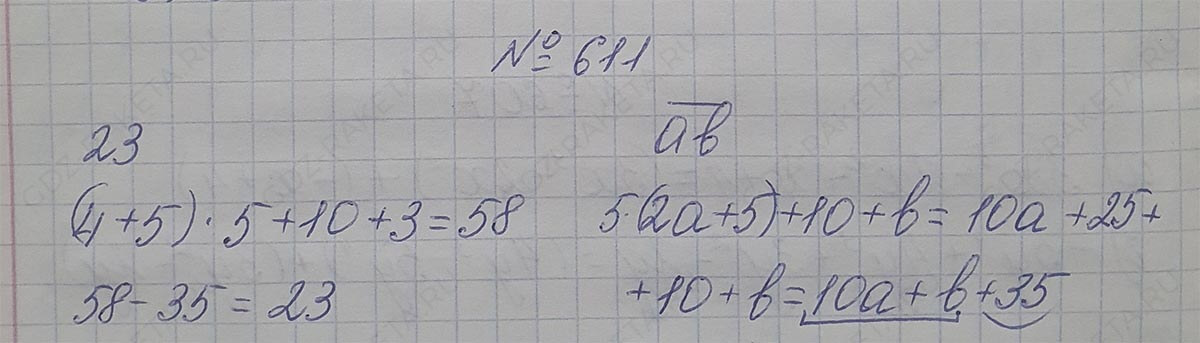 № 611
23
(4+5)·5+10+3=58
58-35=23
ab
5·(2a+5)+10+b=10a+25+
+10+b=10a+b+35